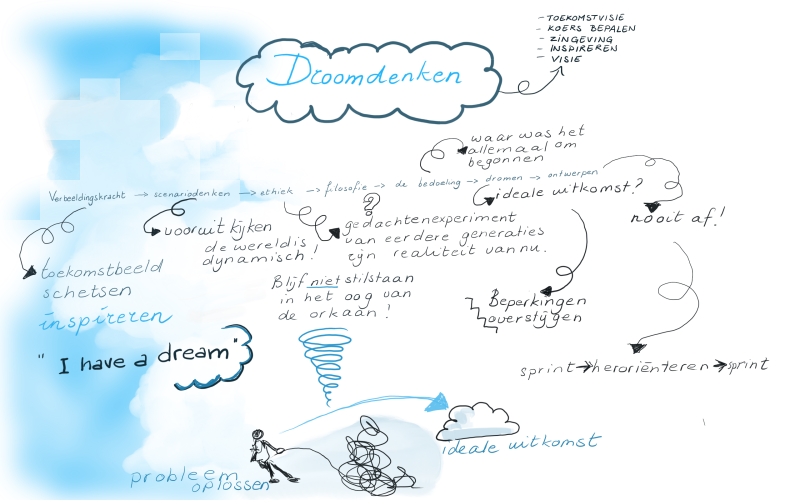 - TOEKOMSTVISIE
- KOERS BEPALEN
- ZINGEVING
- INSPIREREN
- VISIE
Droomdenken
waar was het
allemaal om
begonnen
Verbeeldingskracht → scenariodenken → ethiek → filosofie → de bedoeling → dromen → ontwerpen
ideale uitkomst?
nooit af!
?
vooruit kijken
de wereld is
dynamisch!
gedachtenexperiment
van eerdere generaties
zijn realiteit van nu.
toekomstbeeld
schetsen
inspireren
Blijf niet stilstaan
in het oog van
de orkaan!
Beperkingen
overstijgen
"I have a dream"
sprint → heroriënteren → sprint
ideale uitkomst
probleem
oplossen